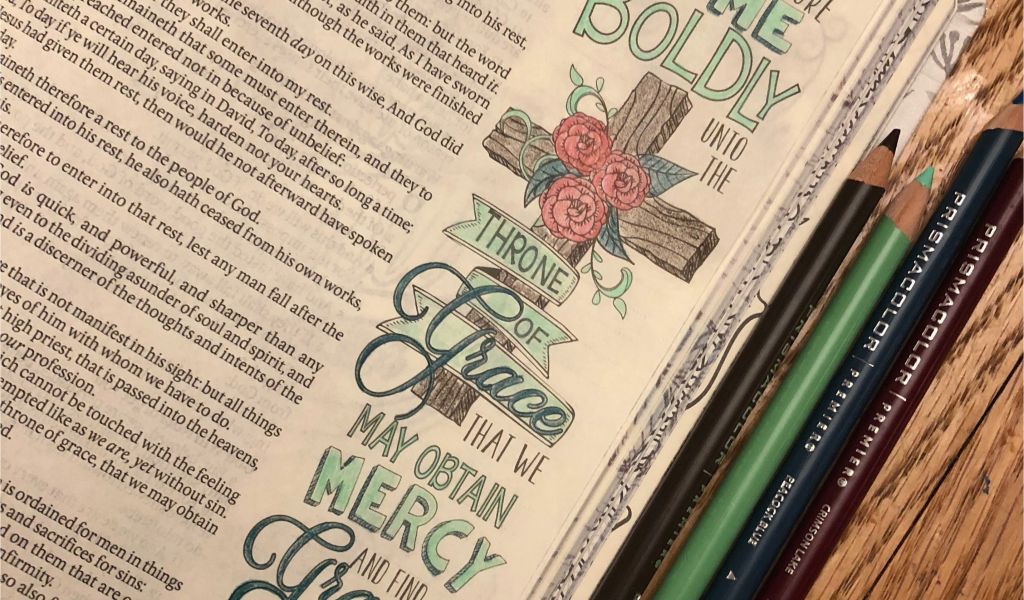 into his rest,
works.
the seventh day on this wise. And God did
they shall enter into my rest.
maineth that some must enter therein, and they to
reached entered not in because of unbelief:
a certain day, saying in David, To day, after so long a time;
To day if ye will hear his voice, harden not your hearts.
had given them rest, then would he not afterward have spoken
therefore a rest to the people of God.
entered into his rest, he also hath ceased from his own works,
is.
to enter into that rest, lest any man fall after the
is quick, and powerful, and sharper than any
even to the dividing asunder of soul and spirit, and
is a discerner of the thoughts and intents of the
that is not manifest in his sight: but all things
of him with whom we have to do.
high priest, that is passed into the heavens,
our profession.
cannot be touched with the feeling
like as we are, yet without sin.
throne of grace, that we may obtain
is ordained for men in things
and sacrifices for sins:
on them that are
them: but the word
with faith in them that heard it.
as he said, As I have sworn
although the works were finished
ME
BOLDLY
UNTO
THE
THRONE
OF
Grace
THAT WE
MAY OBTAIN
MERCY
AND FIND
PRISMACOLOR | PREMIER
PEACOCK BLUE
PRISMACOLOR | PREMIER®
CRIMSON LAKE